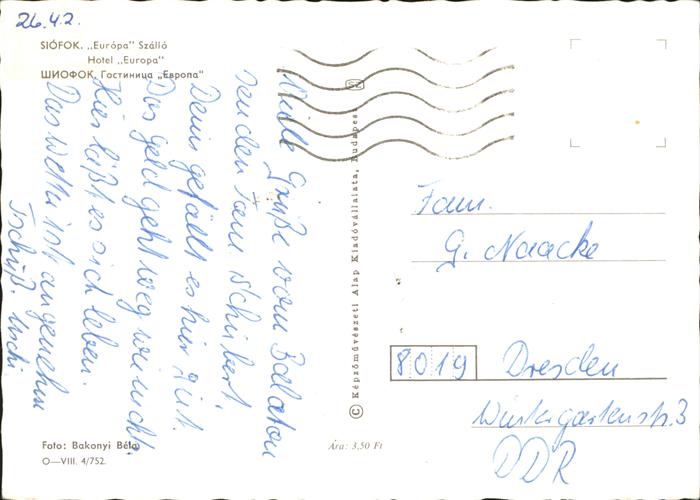 26.4.2.
SIÓFOK. „Európa" Szálló
Hotel „Europa"
ШИОФОК. Гостиница „Европа"
Viele Grüße vom Balaton
senden Fam. Schubert
Denis gefällt es hier gut.
Das Geld geht weg wie nichts.
Hier läßt es sich leben.
Das Wetter ist angenehm
Tschüß. Uschi
SZ
© Képzőművészeti Alap Kiadóvállalata, Budapest
Fam.
G. Naacke
8019 Dresden
Wintergartenstr. 3
DDR
Foto: Bakonyi Béla
O—VIII. 4/752.
Ára: 3,50 Ft